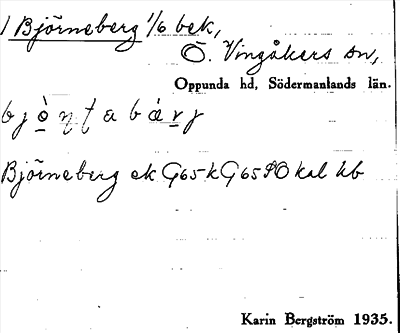 1 Björneberg 1/6 bek,
Ö. Vingåkers sn,
Oppunda hd, Södermanlands län.
Björneberg ek G65 k G65 SO kal hb
Karin Bergström 1935.